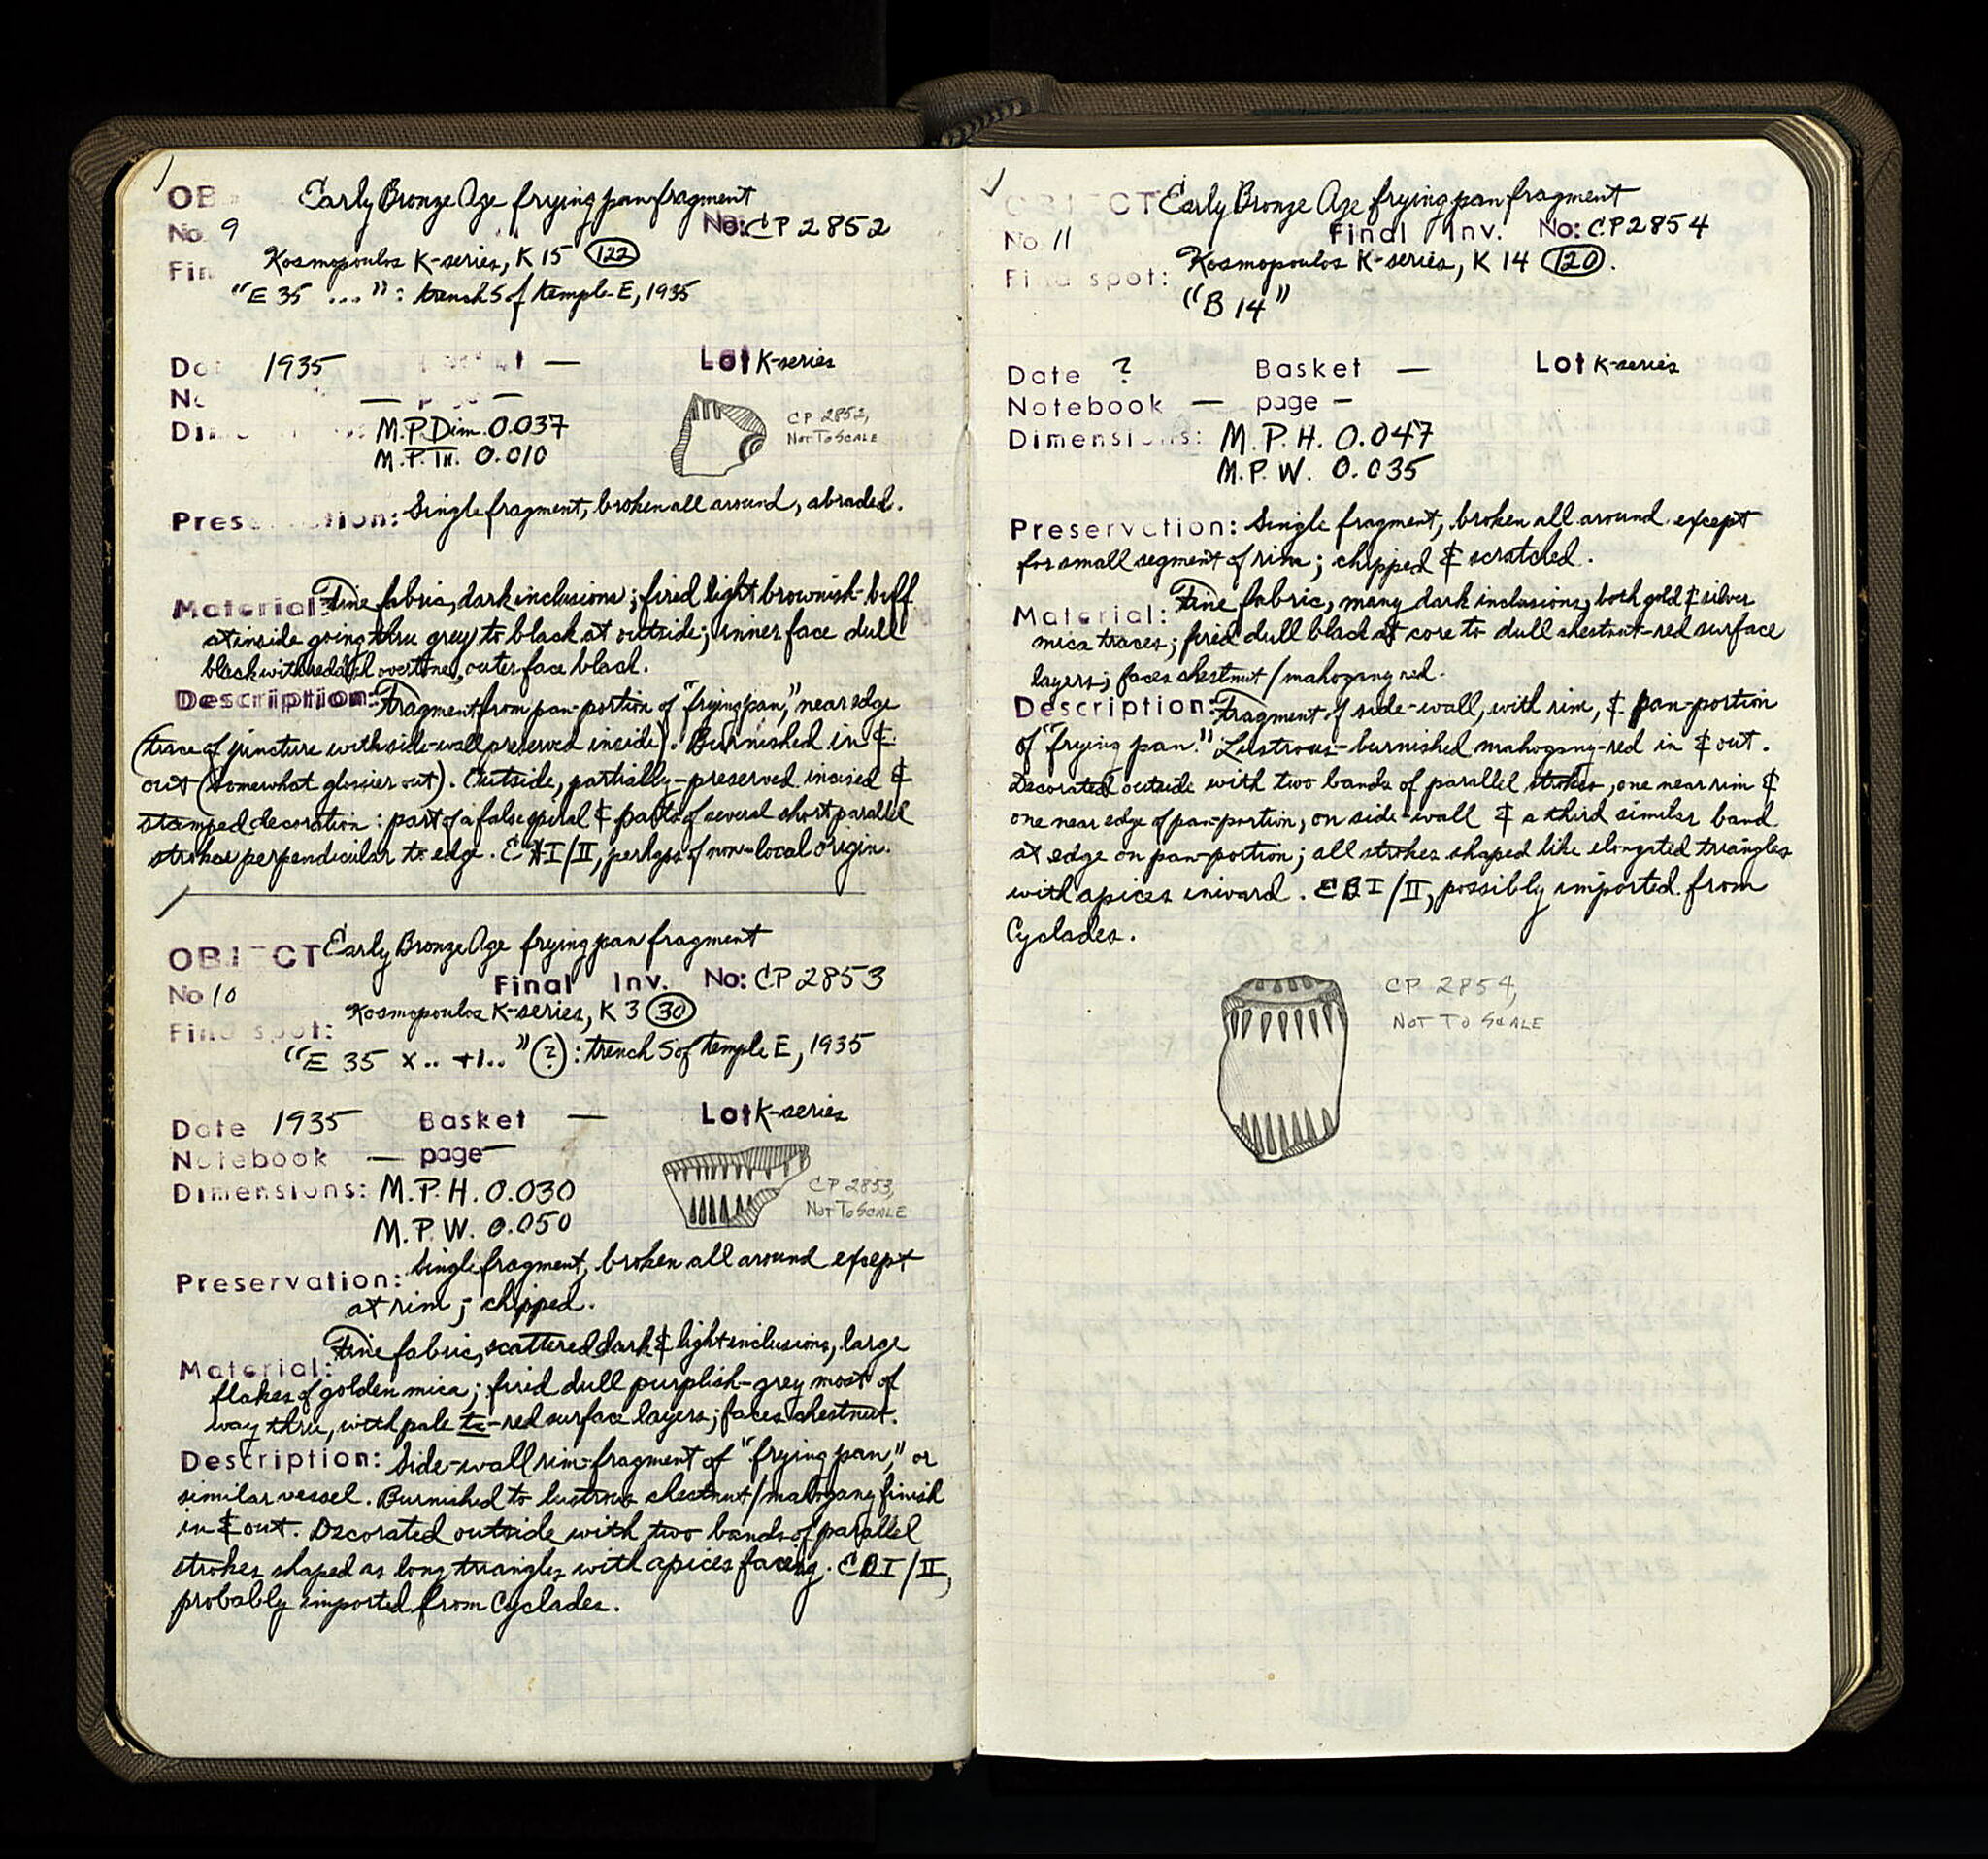 ✓
OB Early Bronze Age frying pan fragment
No 9 No: CP 2852
Fin Kosmopoulos K-series, K 15 (122)
"E 35 ...": trench S of temple E, 1935
Da 1935 t — Lot K-series
No — page —
Di : M.P. Dim. 0.037
M.P. Th. 0.010
CP 2852,
Not To Scale
Preservation: Single fragment, broken all around, abraded.
Material: Fine fabric, dark inclusions; fired light brownish-buff
at inside going thru grey to black at outside; inner face dull
black with reddish overtones, outer face black.
Description: Fragment from pan-portion of "frying pan," near edge
(trace of juncture with side-wall preserved inside). Burnished in &
out (somewhat glossier out). Outside, partially-preserved incised &
stamped decoration: part of a false spiral & parts of several short parallel
strokes perpendicular to edge. EBI/II, perhaps of non-local origin.
OBJECT Early Bronze Age frying pan fragment
No 10 Final Inv. No: CP 2853
Find spot: Kosmopoulos K-series, K 3 (30)
"E 35 x.. +1.." (?): trench S of temple E, 1935
Date 1935 Basket — Lot K-series
Notebook — page —
Dimensions: M.P.H. 0.030
M.P.W. 0.050
CP 2853,
Not To Scale
Preservation: Single fragment, broken all around except
at rim; chipped.
Material: Fine fabric, scattered dark & light inclusions, large
flakes of golden mica; fired dull purplish-grey most of
way thru, with pale -red surface layers; faces chestnut.
Description: Side-wall rim-fragment of "frying pan," or
similar vessel. Burnished to lustrous chestnut/mahogany finish
in & out. Decorated outside with two bands of parallel
strokes shaped as long triangles with apices facing. EBI/II,
probably imported from Cyclades.
✓
OBJECT Early Bronze Age frying pan fragment
No 11 Final Inv. No: CP 2854
Find spot: Kosmopoulos K-series, K 14 (120).
"B 14"
Date ? Basket — Lot K-series
Notebook — page —
Dimensions: M.P.H. 0.047
M.P.W. 0.035
Preservation: Single fragment, broken all around except
for small segment of rim; chipped & scratched.
Material: Fine fabric, many dark inclusions, both gold & silver
mica traces; fired dull black at core to dull chestnut-red surface
layers; faces chestnut/mahogany red.
Description: Fragment of side-wall, with rim, & pan-portion
of "frying pan." Lustrous-burnished mahogany-red in & out.
Decorated outside with two bands of parallel strokes, one near rim &
one near edge of pan-portion, on side-wall & a third similar band
at edge on pan-portion; all strokes shaped like elongated triangles
with apices inward. EBI/II, possibly imported from
Cyclades.
CP 2854,
Not To Scale